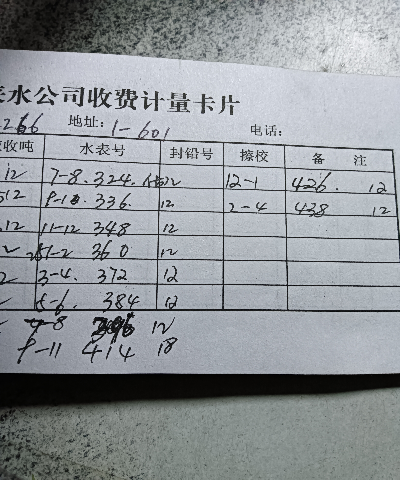 水公司收费计量卡片
266 地址: 1-601 电话:
收吨 水表号 封铅号 擦校 备 注
12 7-8. 324. 12 12-1 426. 12
12 9-10. 336. 12 2-4 438 12
12 11-12 348 12
2 1-2 360 12
2 3-4. 372 12
5-6. 384 12
7-8 396 12
9-11 414 18